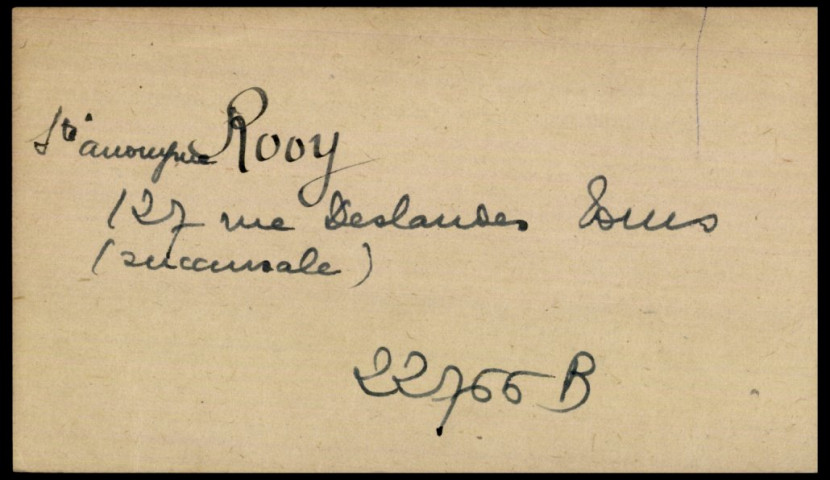 Sté anonyme Rooy
127 rue Deslandes Tours
(succursale)
22766 B